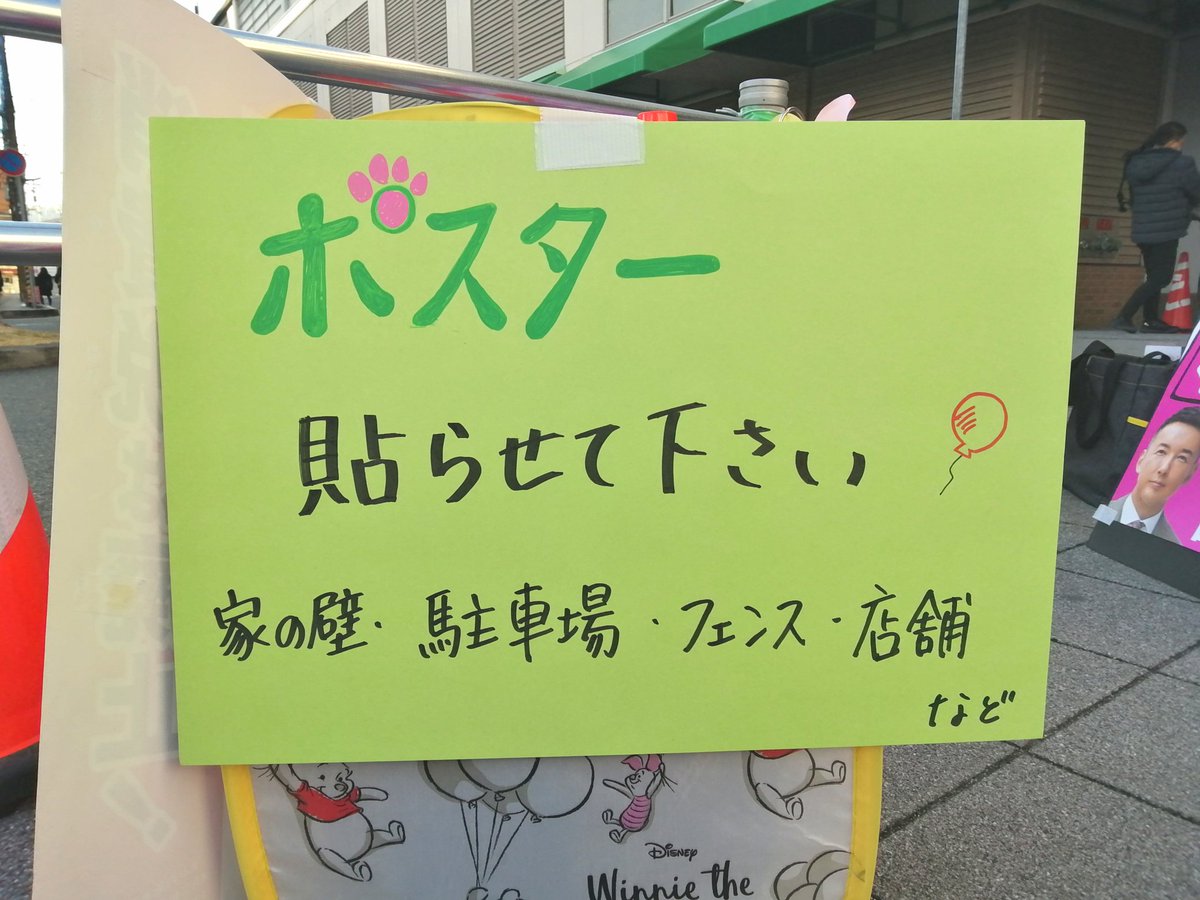 ポスター
貼らせて下さい
家の壁・駐車場・フェンス・店舗
など
Disney
Winnie the